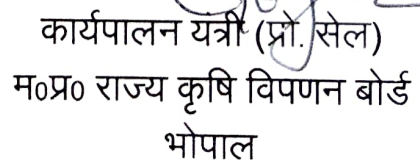 कार्यपालन यत्री (प्रो. सेल)
म०प्र० राज्य कृषि विपणन बोर्ड
भोपाल